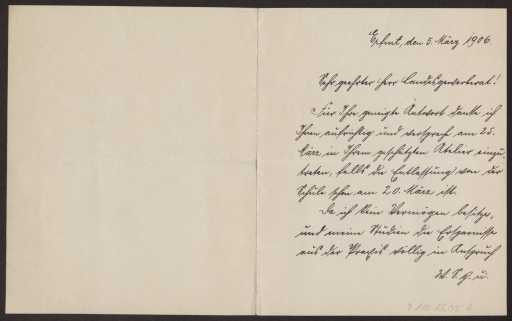 Erfurt, den 5. März 1906.
Sehr geehrter Herr Landesgewerberat!
Für Ihre geneigte Antwort danke ich
Ihnen aufrichtig und verspreche am 25.
März in Ihrem geschätzten Atelier einzu-
treten, falls die Entlassung von der
Schule schon am 20. März ist.
Da ich kein Vermögen besitze,
und meine Studien die Ersparnisse
aus der Praxis völlig in Anspruch